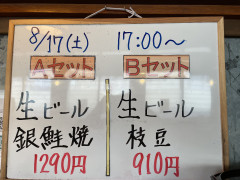 8/17(土) 17:00～
Aセット
生ビール
銀鮭焼
1290円
Bセット
生ビール
枝豆
910円